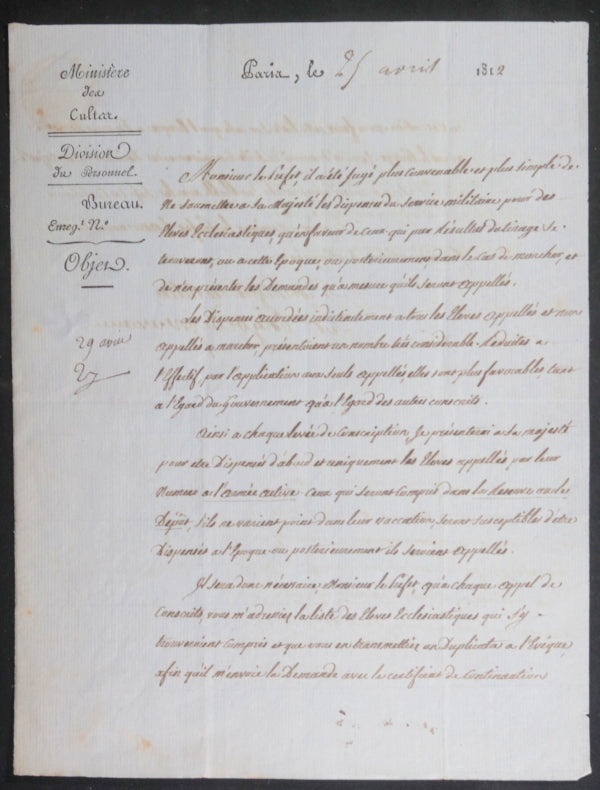 Ministère
des
Cultes.
Division
du Personnel.
Bureau.
Enreg.t N.o
Objet.
29 avril
Paris, le 25 avril 1812
Monsieur le Préfet, il a été jugé plus convenable et plus simple de
ne soumettre a sa Majesté les dispenses du service militaire pour des
Elèves Ecclesiastiques, qu'en faveur de ceux qui par Résultat du tirage se
trouveront, ou a cette Epoque, ou posterieurement dans le cas de marcher, et
de n'en présenter les Demandes qu'a mesure qu'ils seront appellés.
Les Dispenses accordées indistinctement a tous les Elèves appellés et non
appellés a marcher, présentoient un nombre très considerable. Reduites a
l'Effectif, par l'application aux seuls appellés, elles sont plus favorables, tant
a l'Egard du Gouvernement qu'a l'Egard des autres conscrits.
Ainsi a chaque levée de Conscription, Je présenterai a sa majesté
pour etre Dispensés d'abord et uniquement les Elèves appellés par leur
Numero a l'armée active. Ceux qui seront Compris dans la Reserve ou le
Dépôt, s'ils ne varient point dans leur vaccation, seront susceptibles d'etre
Dispensés a l'Epoque ou posterieurement ils seroient appellés.
Il sera donc nécessaire, Monsieur le Préfet, qu'a chaque appel de
Conscrits, vous m'adressiez la liste des Elèves Ecclesiastiques qui s'y
trouveroient Compris et que vous en transmettiez un Duplicata a l'Evêque,
afin qu'il m'envoie la Demande avec le certificat de continuation